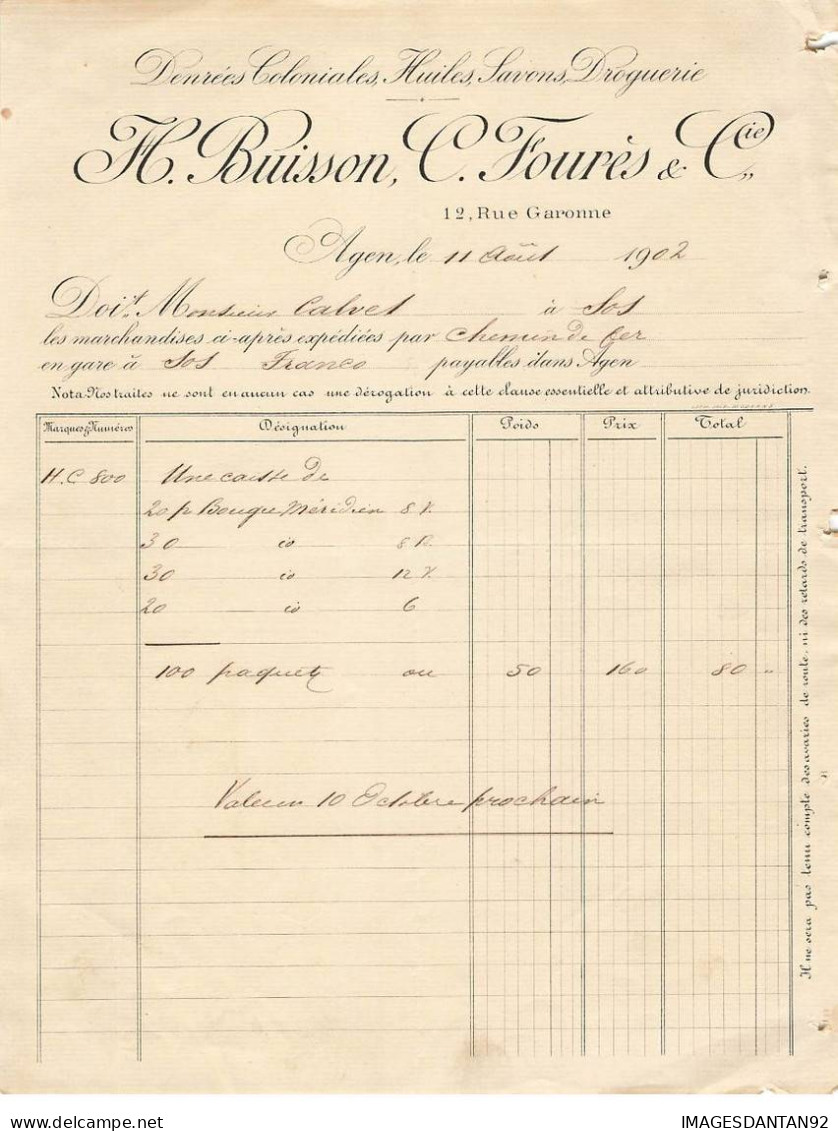 Denrées Coloniales, Huiles, Savons, Droguerie
H. Buisson, C. Fourès & Cie
12, Rue Garonne
Agen, le 11 Août 1902
Doit Monsieur Calvet à Sos
les marchandises ci-après expédiées par Chemin de fer
en gare à Sos Franco payables dans Agen
Nota-Nos traites ne sont en aucun cas une dérogation à cette clause essentielle et attributive de juridiction.
Marques & Numéros Désignation Poids Prix Total
H.C 800 Une caisse de
20 p Bougie Méridien 8
30 io 8
30 io 12
20 io 6
100 paquets ou 50 160 80 "
Valeur 10 Octobre prochain
Il ne sera pas tenu compte des avaries de route, ni des retards de transport.
IMAGESDANTAN92